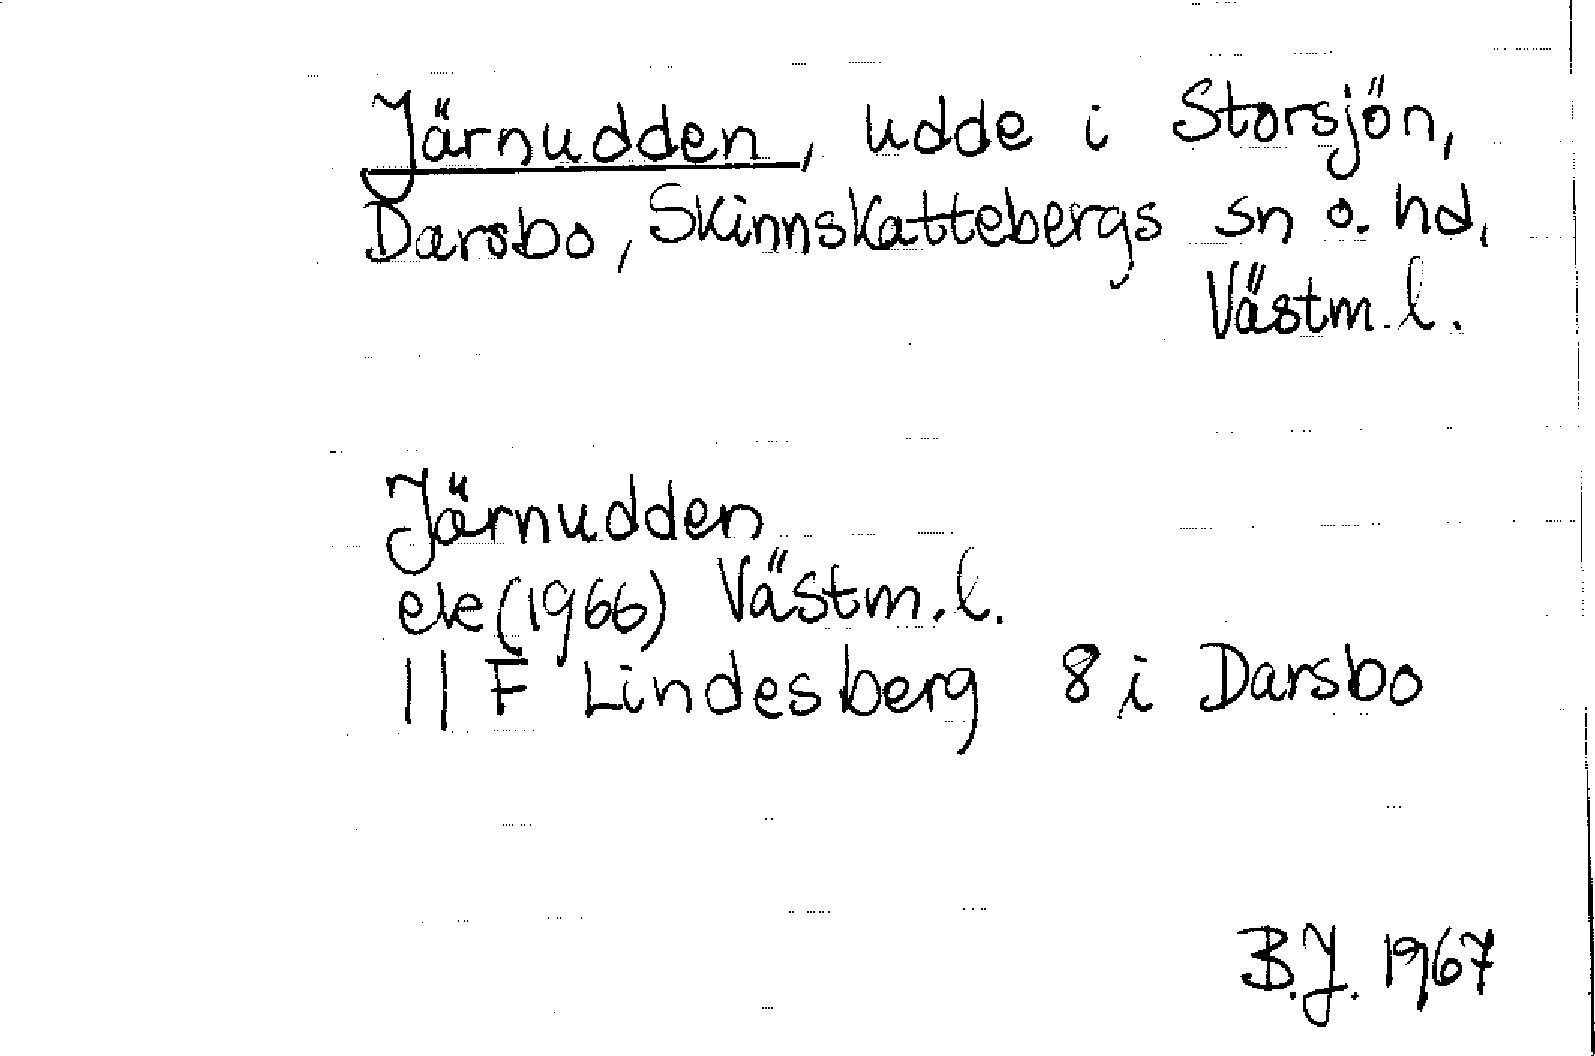 Järnudden, udde i Storsjön,
Darsbo, Skinnskattebergs sn o. hd,
Västm. l.
Järnudden
ek (1966) Västm. l.
11 F Lindesberg 8 i Darsbo
B.J. 1967